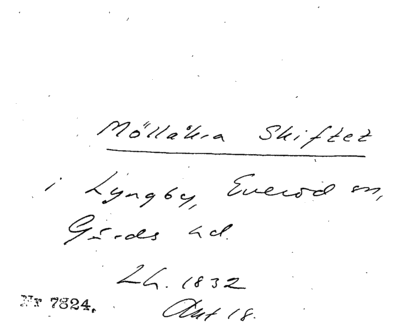 Möllåkra Skiftet
i Lyngby, Everöd sn,
Gärds hd.
Lh. 1832
Akt 18.
Nr 7324.